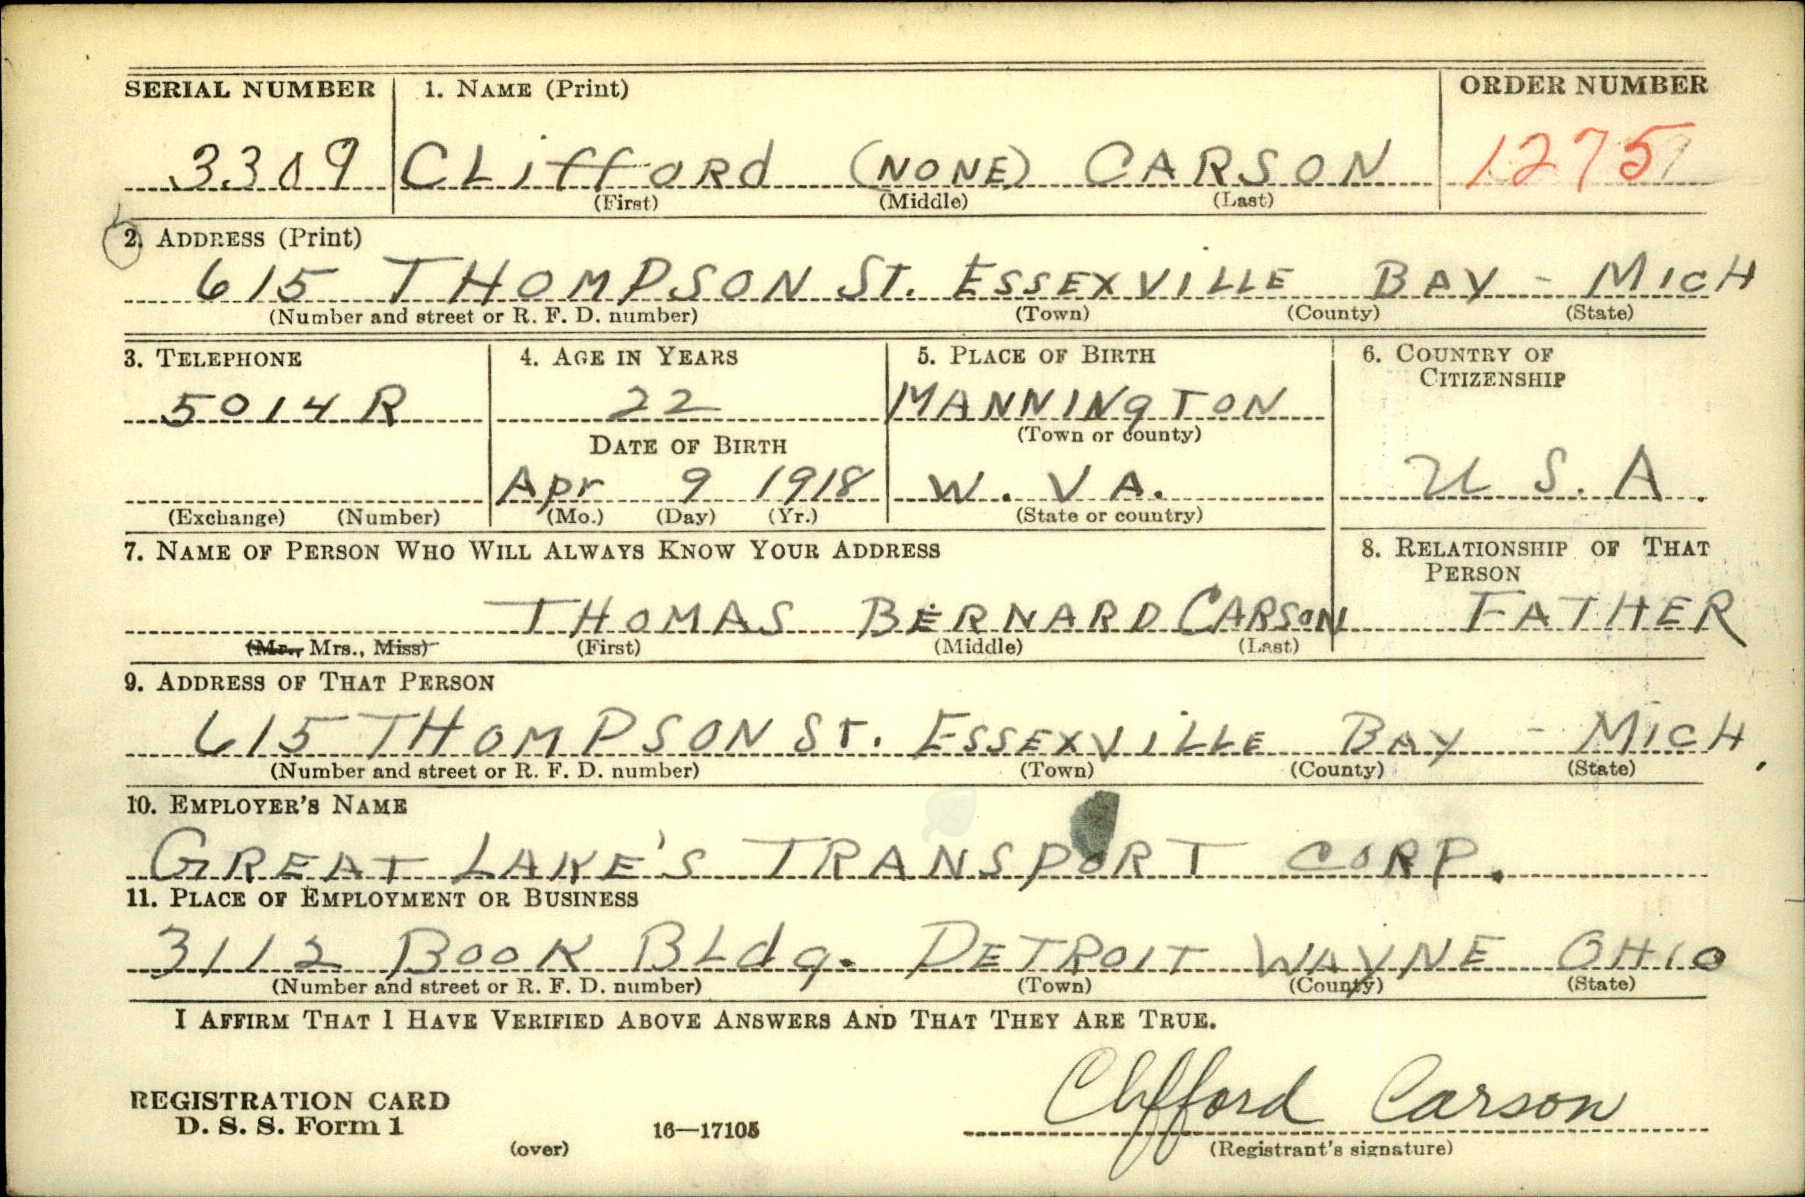 SERIAL NUMBER 1. NAME (Print) ORDER NUMBER
3309 CLifford (NONE) CARSON 1275
(First) (Middle) (Last)
2. ADDRESS (Print)
615 THOMPSON ST. ESSEXVILLE BAY - MICH
(Number and street or R. F. D. number) (Town) (County) (State)
3. TELEPHONE 4. AGE IN YEARS 5. PLACE OF BIRTH 6. COUNTRY OF
CITIZENSHIP
5014 R 22 MANNINgTON
(Town or county)
DATE OF BIRTH
Apr 9 1918 W. VA. U S. A.
(Exchange) (Number) (Mo.) (Day) (Yr.) (State or country)
7. NAME OF PERSON WHO WILL ALWAYS KNOW YOUR ADDRESS 8. RELATIONSHIP OF THAT
PERSON
THOMAS BERNARD CARSON FATHER
(Mr., Mrs., Miss) (First) (Middle) (Last)
9. ADDRESS OF THAT PERSON
615 THOMPSON ST. ESSEXVILLE BAY - MICH.
(Number and street or R. F. D. number) (Town) (County) (State)
10. EMPLOYER'S NAME
GREAT LAKE'S TRANSPORT CORP.
11. PLACE OF EMPLOYMENT OR BUSINESS
3112 BOOK BLdg. DETROIT WAYNE OHIO
(Number and street or R. F. D. number) (Town) (County) (State)
I AFFIRM THAT I HAVE VERIFIED ABOVE ANSWERS AND THAT THEY ARE TRUE.
REGISTRATION CARD
D. S. S. Form 1 Clifford Carson
(over) 16—17105 (Registrant's signature)